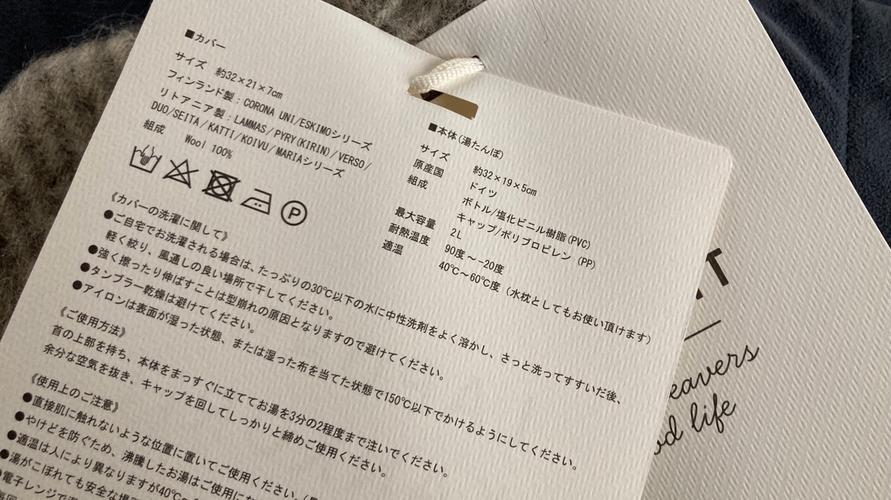 ■カバー
サイズ 約32×21×7cm
フィンランド製：CORONA UNI/ESKIMOシリーズ
リトアニア製：LAMMAS/PYRY(KIRIN)/VERSO/
DUO/SEITA/KATTI/KOIVU/MARIAシリーズ
組成 Wool 100%
P
■本体(湯たんぽ)
サイズ 約32×19×5cm
原産国 ドイツ
組成 ボトル/塩化ビニル樹脂(PVC)
キャップ/ポリプロピレン (PP)
最大容量 2L
耐熱温度 90度～-20度
適温 40℃～60℃度 (水枕としてもお使い頂けます)
《カバーの洗濯に関して》
●ご自宅でお洗濯される場合は、たっぷりの30℃以下の水に中性洗剤をよく溶かし、さっと洗ってすすいだ後、
軽く絞り、風通しの良い場所で干してください。
●強く擦ったり伸ばすことは型崩れの原因となりますので避けてください。
●タンブラー乾燥は避けてください。
●アイロンは表面が湿った状態、または湿った布を当てた状態で150℃以下でかけるようにしてください。
《ご使用方法》
首の上部を持ち、本体をまっすぐに立ててお湯を3分の2程度まで注いでください。
余分な空気を抜き、キャップを回してしっかりと締めご使用ください。
《使用上のご注意》
●直接肌に触れないような位置に置いてご使用ください。
●やけどを防ぐため、沸騰したお湯はご使用にな
●適温は人により異なりますが40℃～
●湯がこぼれても安全な場
電子レンジで
T
eavers
od life